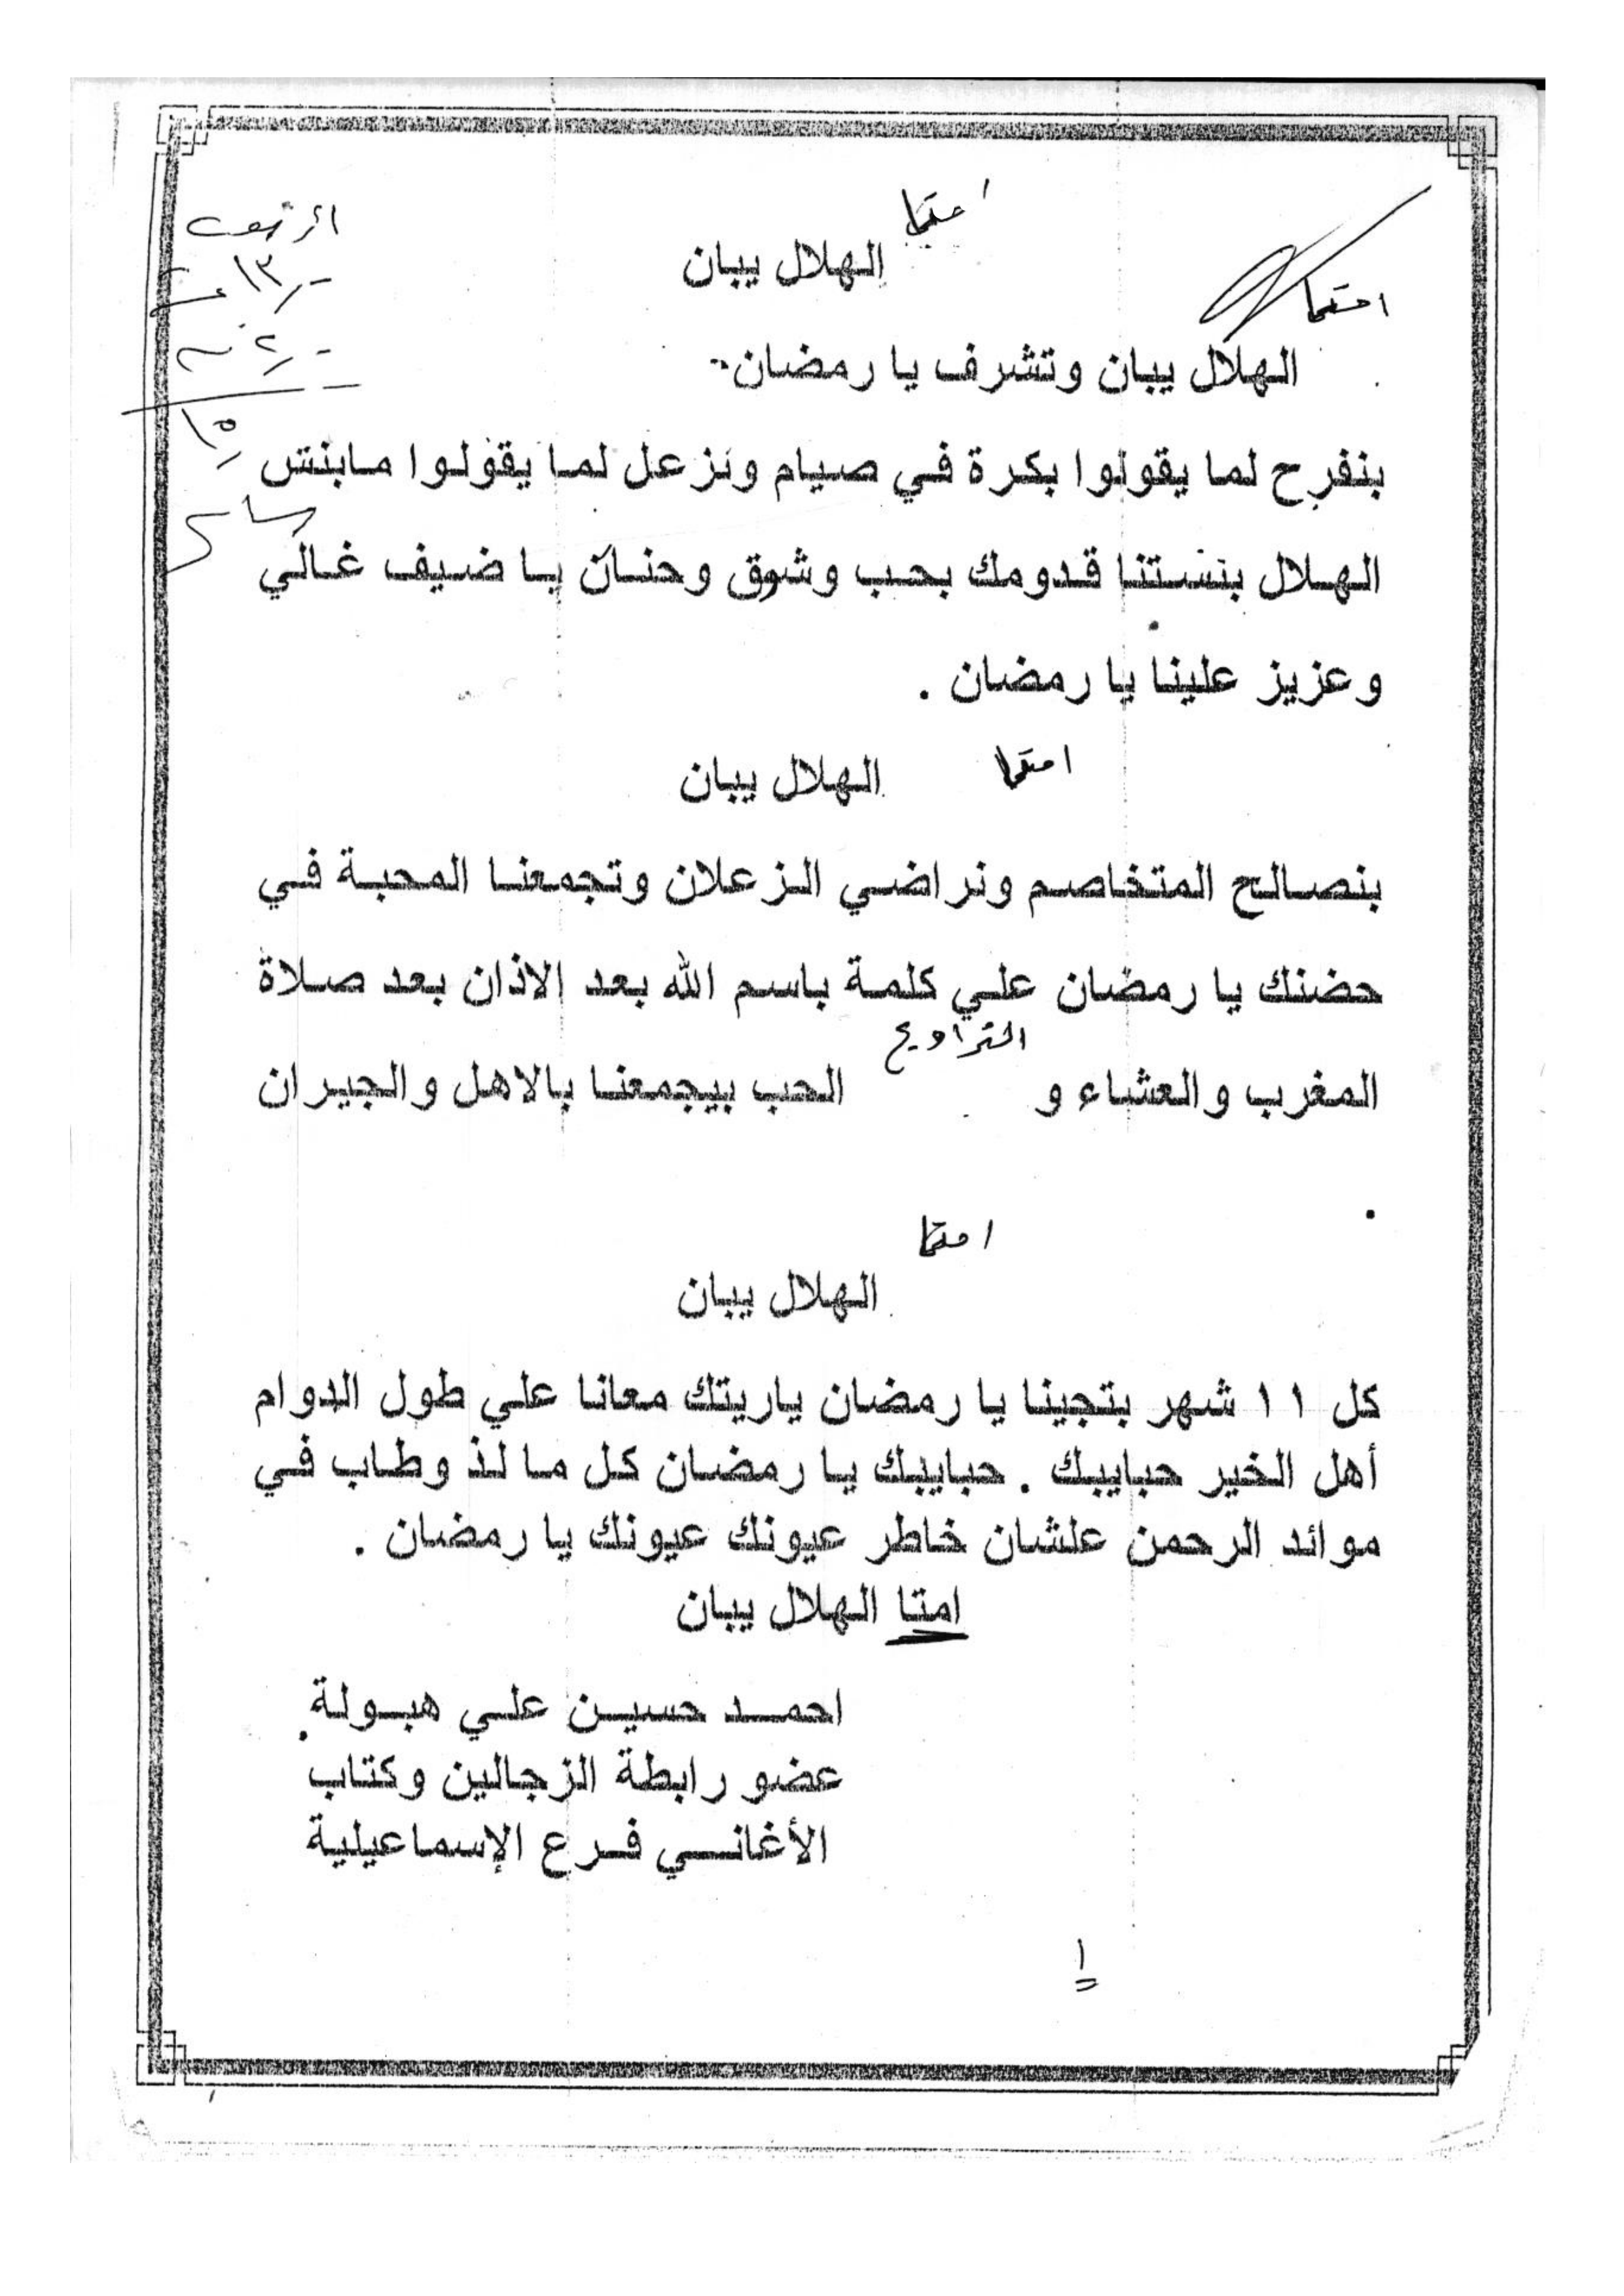 امتا
الهلال يبان
امتا
الهلال يبان وتشرف يا رمضان
بنفرح لما يقولوا بكرة في صيام ونزعل لما يقولوا مابنش
الهلال بنستنا قدومك بحب وشوق وحنان يا ضيف غالي
وعزيز علينا يا رمضان .
امتا الهلال يبان
بنصالح المتخاصم ونراضي الزعلان وتجمعنا المحبة في
حضنك يا رمضان علي كلمة باسم الله بعد الاذان بعد صلاة
المغرب والعشاء و التراويح الحب بيجمعنا بالاهل والجيران
.
امتا
الهلال يبان
كل ١١ شهر بتجينا يا رمضان ياريتك معانا علي طول الدوام
أهل الخير حبايبك . حبايبك يا رمضان كل ما لذ وطاب في
موائد الرحمن علشان خاطر عيونك عيونك يا رمضان .
امتا الهلال يبان
احمد حسين علي هبولة
عضو رابطة الزجالين وكتاب
الأغاني فرع الإسماعيلية
١